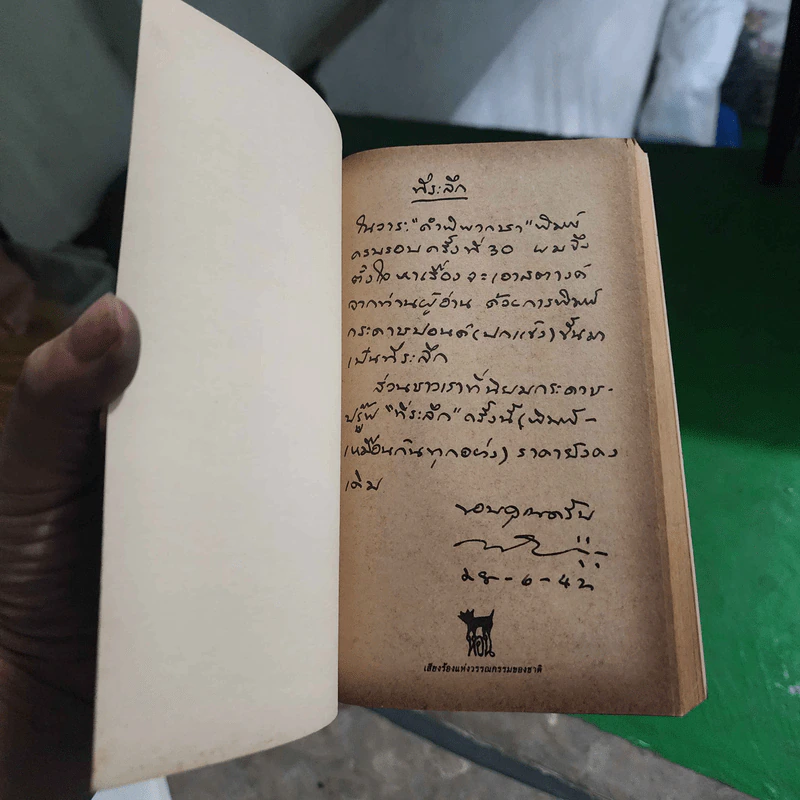 ที่ระลึก
ในวาระ "คำพิพากษา" พิมพ์
ครบรอบครั้งที่ 30 ผมจึง
ตั้งใจหาเรื่องจะเอาสตางค์
จากท่านผู้อ่าน ด้วยการพิมพ์
กระดาษปอนด์ (ปกแข็ง) ขึ้นมา
เป็นที่ระลึก
ส่วนชาวเราที่นิยมกระดาษ-
ปรู๊ฟ "ที่ระลึก" ครั้งนี้ (พิมพ์-
เหมือนกันทุกอย่าง) ราคายังคง
เดิม
ขอบคุณครับ
หอน
เสียงร้องแห่งวรรณกรรมของชาติ